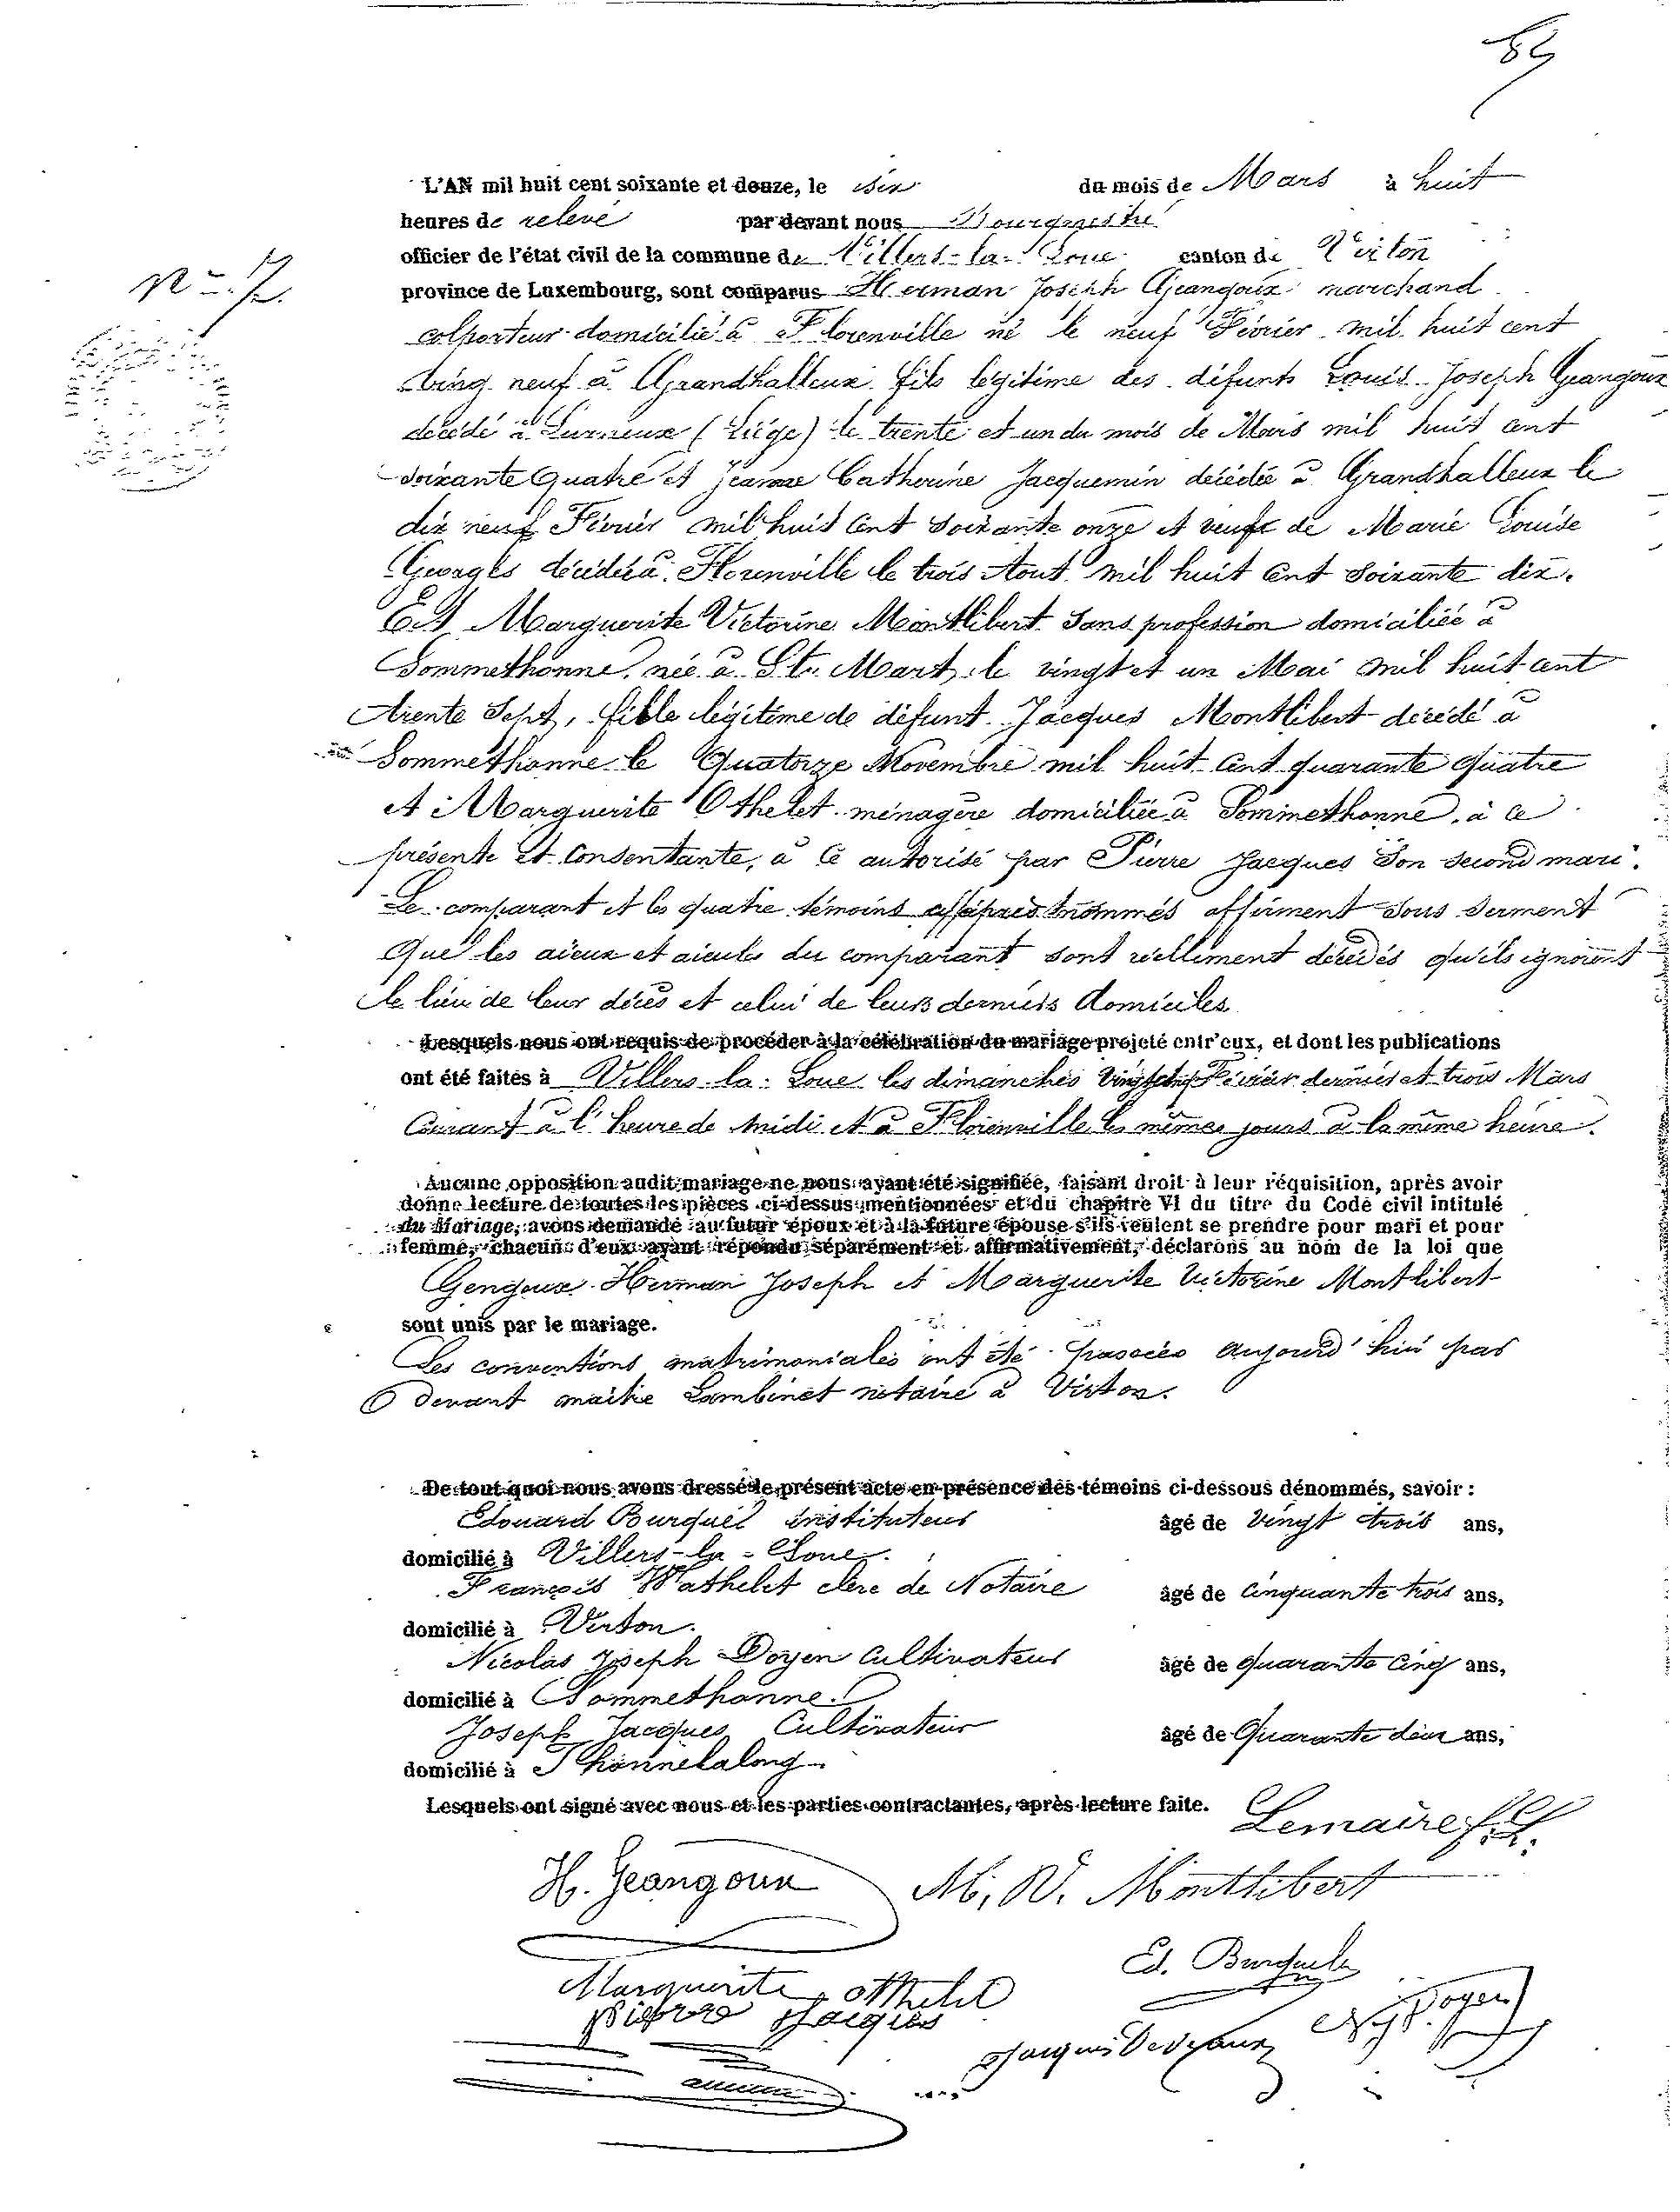 L'AN mil huit cent soixante et douze, le six du mois de Mars à huit
heures de relevé par devant nous Bourgmestre
officier de l'état civil de la commune de Villers-la-Loue canton de Virton
province de Luxembourg, sont comparus Herman Joseph Geangoux marchand
colporteur domicilié à Florenville né le neuf Février mil huit cent
vingt neuf à Grandhalleux fils légitime des défunts Louis Joseph Geangoux
décédé à Lierneux (Liége) le trente et un du mois de Mars mil huit cent
soixante quatre et Jeanne Catherine Jacquemin décédée à Grandhalleux le
dix neuf Février mil huit cent soixante onze et veuf de Marie Louise
Georges décédée à Florenville le trois Aout mil huit cent soixante dix.
Et Marguerite Victorine Montlibert sans profession domiciliée à
Sommethonne, née à St. Mard, le vingt et un Mai mil huit cent
trente sept, fille légitime de défunt Jacques Montlibert décédé à
Sommethonne le quatorze Novembre mil huit cent quarante quatre
et Marguerite Othelet ménagère domiciliée à Sommethonne, à ce
présente et consentante, à ce autorisé par Pierre Jacques son second mari.
Le comparant et les quatre témoins affirment sous serment
que les aieux et aieules du comparant sont réellement décédés qu'ils ignorent
le lieu de leur décès et celui de leurs derniers domiciles
Lesquels nous ont requis de procéder à la célébration du mariage projeté entr'eux, et dont les publications
ont été faites à Villers-la-Loue les dimanches Février dernier et trois Mars
Courant à l'heure de midi et à Florenville les mêmes jours à la même heure.
Aucune opposition audit mariage ne nous ayant été signifiée, faisant droit à leur réquisition, après avoir
donne lecture de toutes les pièces ci-dessus mentionnées et du chapitre VI du titre du Code civil intitulé
du Mariage, avons demandé au futur époux et à la future épouse s'ils veulent se prendre pour mari et pour
femme, chacun d'eux ayant répondu séparément et affirmativement, déclarons au nom de la loi que
Gengoux Herman Joseph et Marguerite Victorine Montlibert
sont unis par le mariage.
Les conventions matrimoniales ont été passées aujourd'hui par
devant maitre Lambinet notaire à Virton.
De tout quoi nous avons dressé le présent acte en présence des témoins ci-dessous dénommés, savoir :
Edouard Burquel instituteur âgé de vingt trois ans,
domicilié à Villers-la-Loue.
François Wathelet clerc de Notaire âgé de cinquante trois ans,
domicilié à Virton.
Nicolas Joseph Doyen Cultivateur âgé de quarante cinq ans,
domicilié à Sommethonne.
Joseph Jacques Cultivateur âgé de Quarante deux ans,
domicilié à Thonnelalong.
Lesquels ont signé avec nous et les parties contractantes, après lecture faite.
Lemaire
H. Geangoux M. V. Montlibert
Ed. Burquel
Marguerite othelet
pierre Jacques
Doyen
Jacques